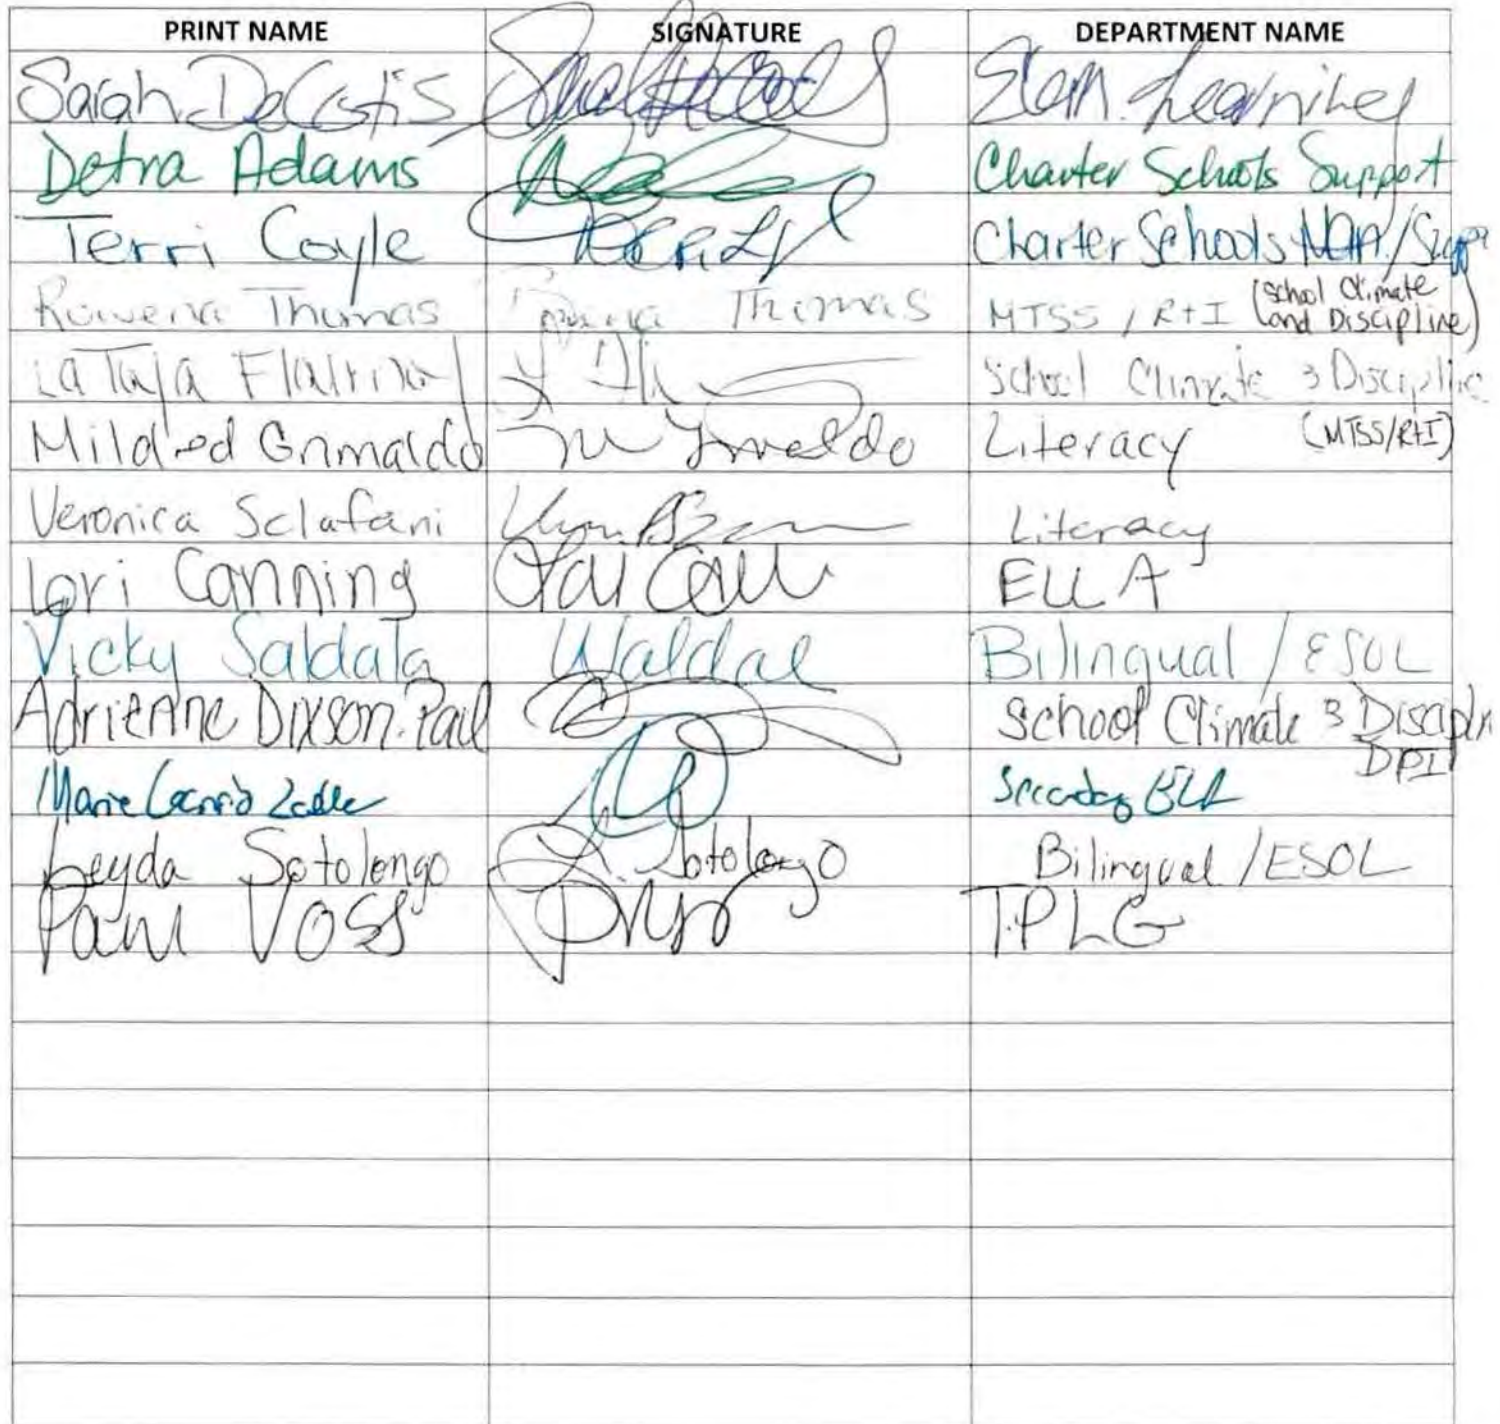 PRINT NAME SIGNATURE DEPARTMENT NAME
Sarah DeCostis Elem. Learning
Detra Adams Charter Schools Support
Terri Coyle Charter Schools
Rowena Thomas Thomas MTSS / RtI (School Climate
and Discipline)
School Climate & Discipline
Mildred Grimaldo Literacy (MTSS/RtI)
Veronica Sclafani Literacy
Lori Canning ELLA
Vicky Saldala Bilingual / ESOL
Adrienne Dixson-Paul School Climate & Disciplin
DPI
Marie Secondary ELA
Leyda Sotolongo L. Sotolongo Bilingual / ESOL
Pam Voss T.P.L.G